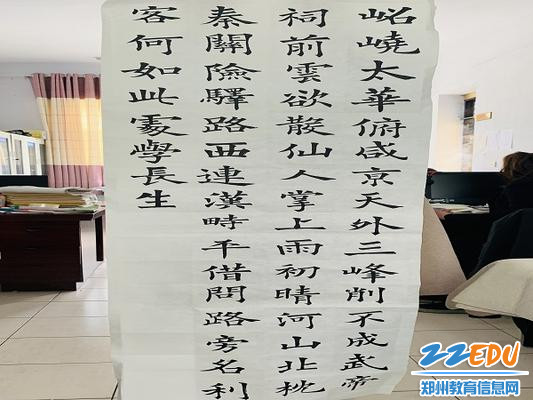 岹嶢太華俯咸京天外三峰削不成武帝
祠前雲欲散仙人掌上雨初晴河山北枕
秦關險驛路西連漢畤平借問路旁名利
客何如此處學長生
22EDU
郑州教育信息网